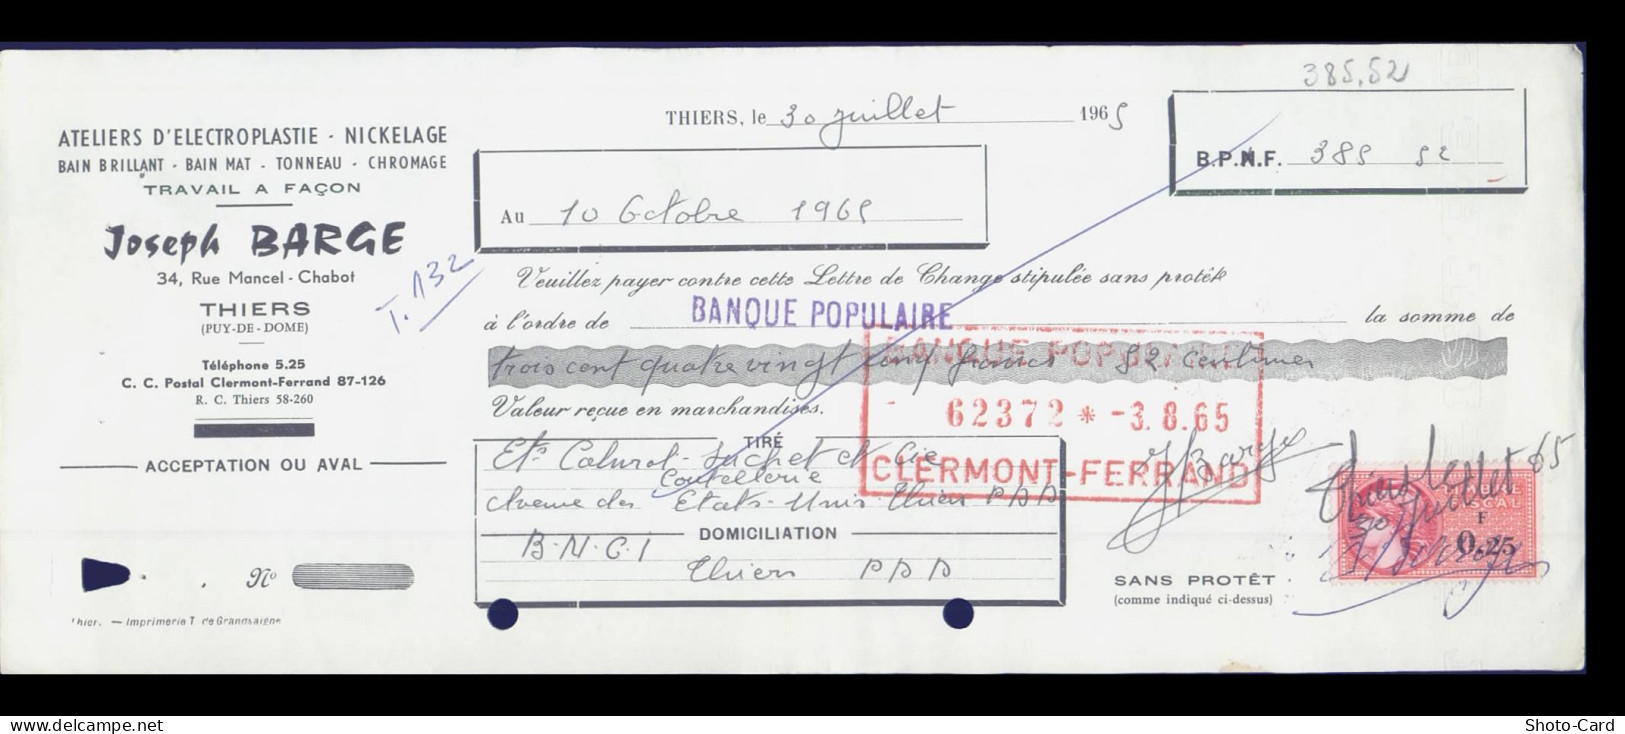 385,52
THIERS, le 30 juillet 1965
ATELIERS D'ELECTROPLASTIE - NICKELAGE
BAIN BRILLANT - BAIN MAT - TONNEAU - CHROMAGE
TRAVAIL A FAÇON
Joseph BARGE
34, Rue Mancel - Chabot
THIERS
(PUY-DE-DOME)
Téléphone 5.25
C. C. Postal Clermont-Ferrand 87-126
R. C. Thiers 58-260
ACCEPTATION OU AVAL
T. 132
B.P.N.F. 385 52
Au 10 Octobre 1965
Veuillez payer contre cette Lettre de Change stipulée sans protêt
à l'ordre de BANQUE POPULAIRE la somme de
trois cent quatre vingt cinq francs 52 centimes
Valeur reçue en marchandises.
BANQUE POPULAIRE
62372 * -3.8.65
CLERMONT-FERRAND
TIRÉ
Ets Suchet et Cie
Coutellerie
Avenue des Etats-Unis Thiers P.D.D
DOMICILIATION
B.N.C.I
Thiers P.D.D
J Barge
Thiers le
30 juillet 65
FISCAL
F
0,25
SANS PROTÊT
(comme indiqué ci-dessus)
No
Thiers. — Imprimerie T. de Grandsaigne
www.delcampe.net
Shoto-Card